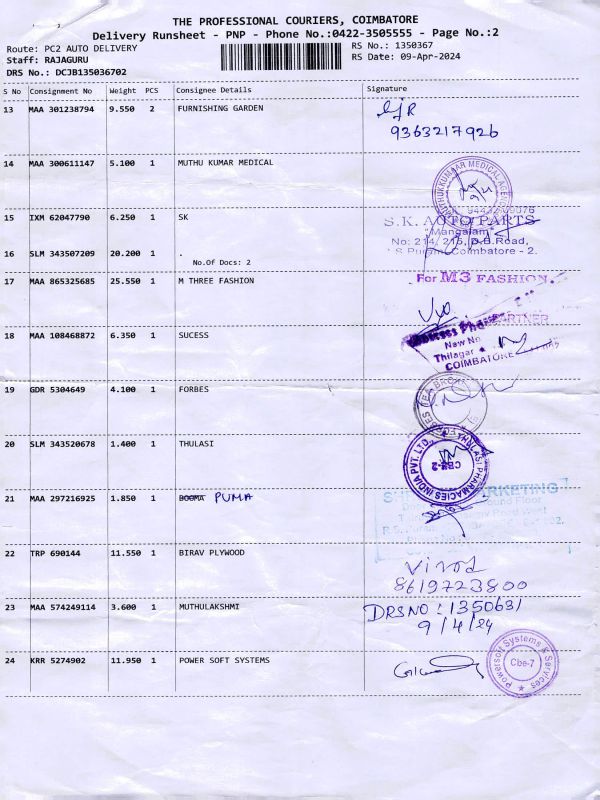 THE PROFESSIONAL COURIERS, COIMBATORE
Delivery Runsheet - PNP - Phone No.:0422-3505555 - Page No.:2
Route: PC2 AUTO DELIVERY
RS No.: 1350367
Staff: RAJAGURU
RS Date: 09-Apr-2024
DRS No.: DCJB135036702
S No Consignment No Weight PCS Consignee Details Signature
13 MAA 301238794 9.550 2 FURNISHING GARDEN
9363217926
14 MAA 300611147 5.100 1 MUTHU KUMAR MEDICAL
MUTHUKKUMAAR MEDICAL
15 IXM 62047790 6.250 1 SK
S.K. AUTO PARTS
"Mangalam"
No: 214, 215, D.B.Road,
Coimbatore - 2.
16 SLM 343507209 20.200 1 .
No.Of Docs: 2
17 MAA 865325685 25.550 1 M THREE FASHION
For M3 FASHION.
18 MAA 108468872 6.350 1 SUCESS
New No
Thilagar
COIMBATORE
19 GDR 5304649 4.100 1 FORBES
20 SLM 343520678 1.400 1 THULASI
THULASI PHARMACIES INDIA PVT. LTD.
CBE-2
21 MAA 297216925 1.850 1 BOOMA PUMA
22 TRP 690144 11.550 1 BIRAV PLYWOOD
Vinod
8619723800
23 MAA 574249114 3.600 1 MUTHULAKSHMI
DRSNO: 1350631
9/4/24
24 KRR 5274902 11.950 1 POWER SOFT SYSTEMS
Powersoft Systems &
Cbe-7